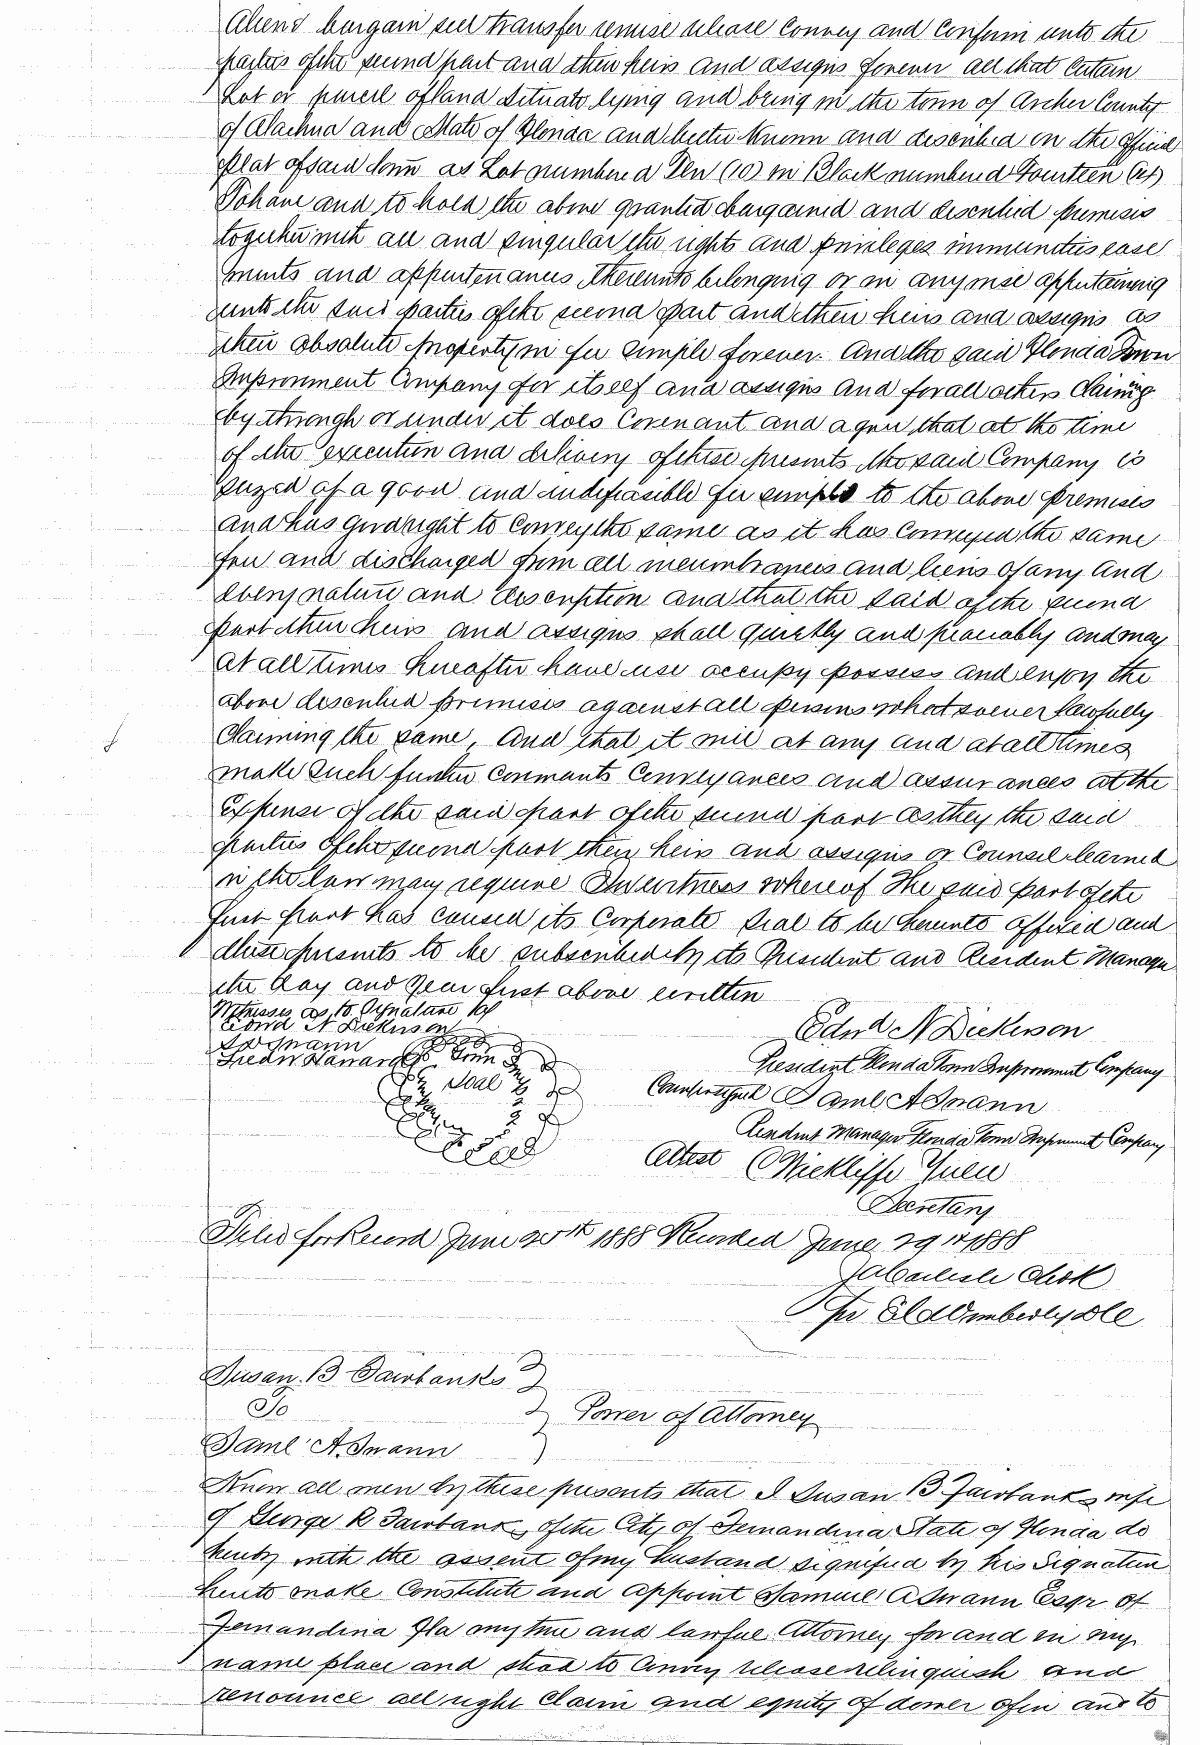 Aliend bargain sell transfer remise release Convey and Confirm unto the
parties of the second part and their heirs and assigns forever all that Certain
Lot or parcell of land situate lying and being in the town of Archer County
of Alachua and State of Florida and better Known and described on the official
plat of said town as Lot numbered Ten (10) in Block numbered Fourteen (14)
To have and to hold the above granted bargained and described premises
together with all and singular the rights and privileges immunities ease
ments and appurtenances thereunto belonging or in any wise appertaining
unto the said parties of the second part and their heirs and assigns as
their absolute property in fee simple forever. And the said Florida Town
Improvment Company for itself and assigns and for all others Claiming
by through or under it does Covenant and agree that at the time
of the execution and delivery of these presents the said Company is
seized of a good and indefeasible fee simple to the above premises
and has good right to Convey the same as it has Conveyed the same
free and discharged from all incumbrances and liens of any and
every nature and description and that the said of the second
part their heirs and assigns shall quietly and peaceably and may
at all times hereafter have use occupy possess and enjoy the
above described premises against all persons whatsoever lawfully
Claiming the same, And that it will at any and at all times
make such further Convnants Conveyances and assurances at the
expense of the said part of the second part as they the said
parties of the second part their heirs and assigns or Counsel learned
in the law may require In witness whereof The said part of the
first part has caused its Corporate Seal to be hereunto affixed and
these presents to be subscribed by its President and Resident Manager
the day and year first above written
Witnesses as to Signature of
Edwd N Dickerson
S A Swann
Edwd N Dickerson
President Florida Town Improvement Company
Seal
Countersigned Saml A Swann
Resident Manager Florida Town Improvment Company
Attest Wickliffe Yulee
Secretary
Filed for Record June 20th 1888 Recorded June 29th 1888
J A Carlisle Clerk
Per E L Wimberly DC
Susan. B Fairbanks
To
Power of Attorney
Saml A. Swann
Know all men by these presents that I Susan B Fairbanks wife
of George R Fairbanks of the City of Fernandina State of Florida do
hereby with the assent of my husband signified by his Signature
hereto make Constitute and appoint Samuel A Swann Esqr of
Fernandina Fla my true and lawful Attorney for and in my
name place and stead to Convey release relinquish and
renounce all right Claim and equity of dower of in and to